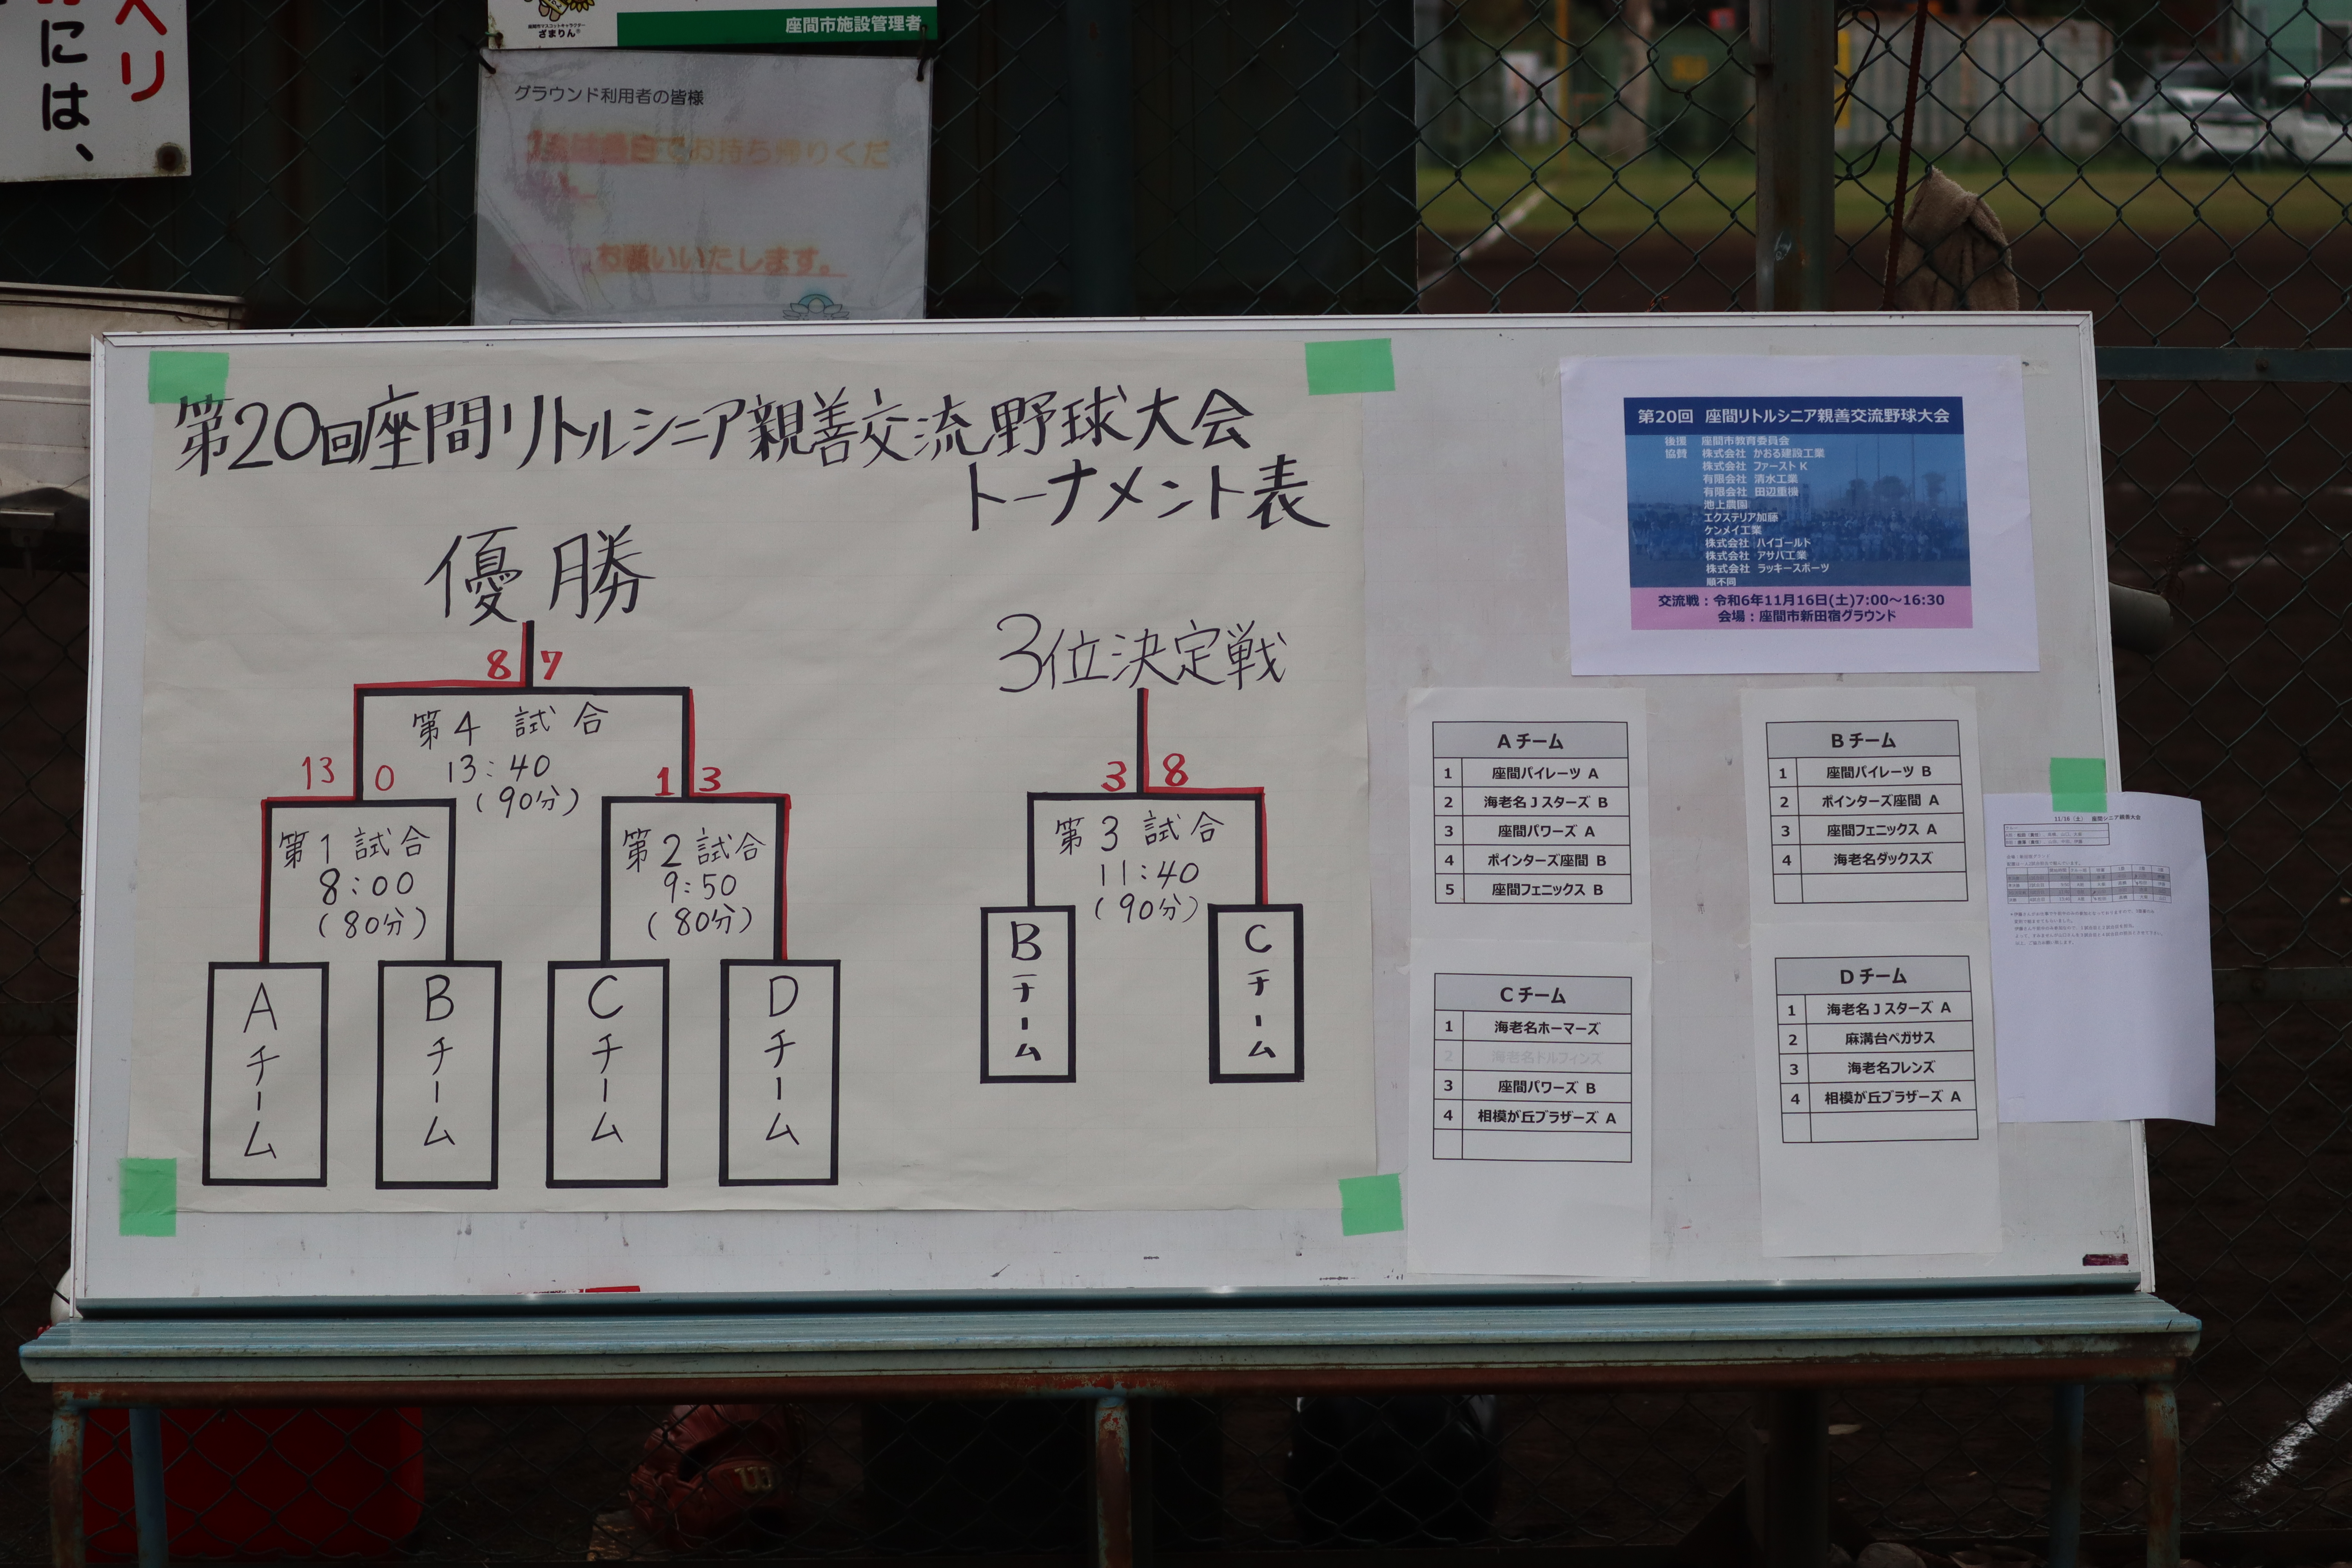 ベリ
には、
座間市マスコットキャラクター
ざまりん®
座間市施設管理者
グラウンド利用者の皆様
でお持ち帰りくだ
お願いいたします。
第20回座間リトルシニア親善交流野球大会
トーナメント表
優勝
8 7
第4試合
13:40
(90分)
13 0
1 3
第1試合
8:00
(80分)
第2試合
9:50
(80分)
Aチーム
Bチーム
Cチーム
Dチーム
3位決定戦
3 8
第3試合
11:40
(90分)
Bチーム
Cチーム
第20回 座間リトルシニア親善交流野球大会
後援 座間市教育委員会
協賛 株式会社 かおる建設工業
株式会社 ファーストK
有限会社 清水工業
有限会社 田辺重機
池上農園
エクステリア加藤
ケンメイ工業
株式会社 ハイゴールド
株式会社 アサバ工業
株式会社 ラッキースポーツ
順不同
交流戦:令和6年11月16日(土)7:00~16:30
会場:座間市新田宿グラウンド
Aチーム
1 座間パイレーツ A
2 海老名Jスターズ B
3 座間パワーズ A
4 ポインターズ座間 B
5 座間フェニックス B
Bチーム
1 座間パイレーツ B
2 ポインターズ座間 A
3 座間フェニックス A
4 海老名ダックスズ
Cチーム
1 海老名ホーマーズ
2 海老名ドルフィンズ
3 座間パワーズ B
4 相模が丘ブラザーズ A
Dチーム
1 海老名Jスターズ A
2 麻溝台ペガサス
3 海老名フレンズ
4 相模が丘ブラザーズ A
11/16(土) 座間シニア親善大会